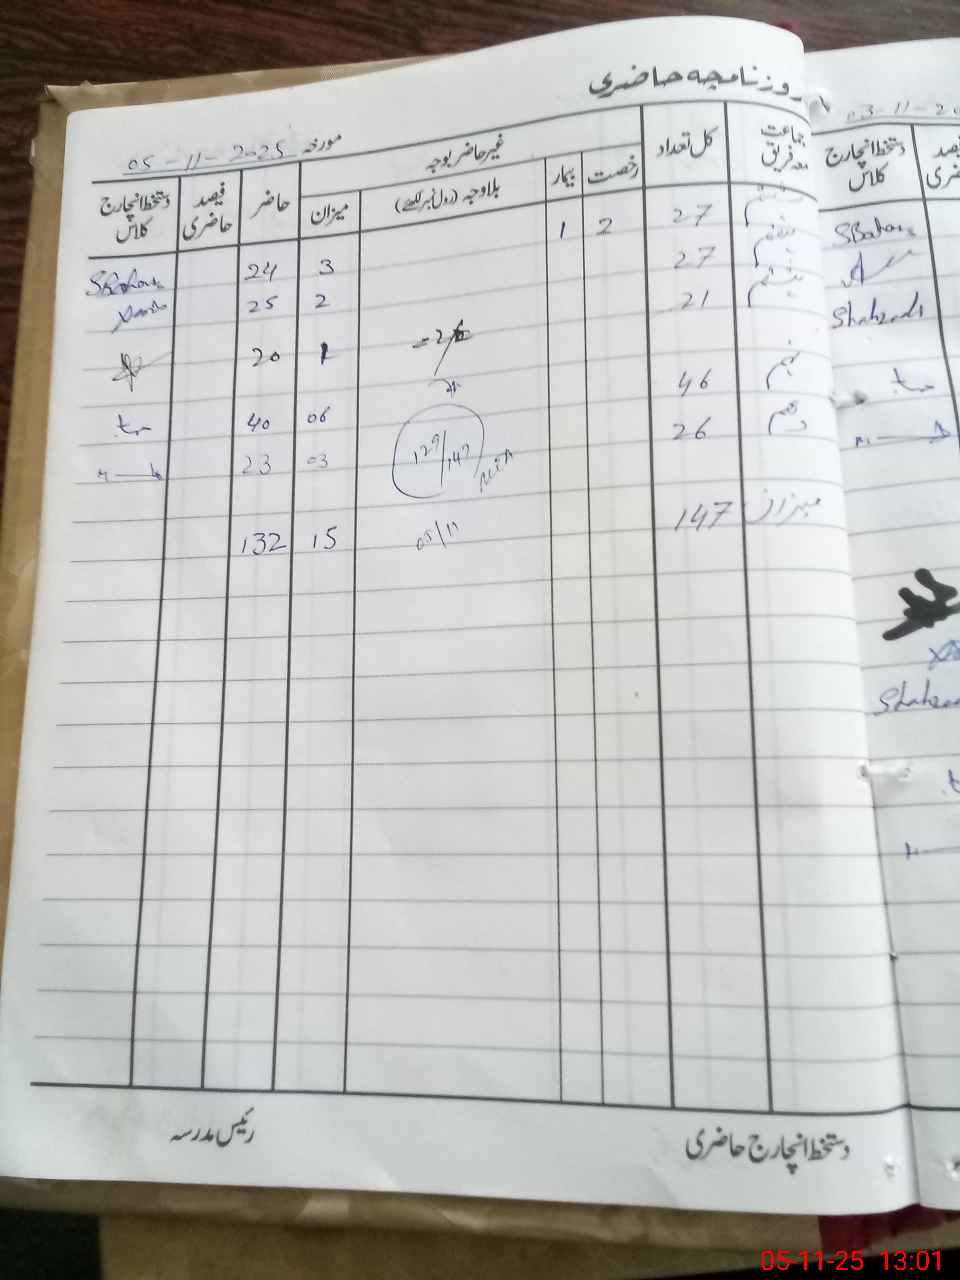 روزنامچہ حاضری
مورخہ 05-11-2025
جماعت معہ فریق کل تعداد غیر حاضر بوجہ حاضر فیصد حاضری دستخط انچارج کلاس
رخصت بیمار بلاوجہ (رول نمبر لکھیے) میزان
ششم 27 2 1 3 24
ہفتم 27 2 25
ہشتم 21 1 20
نہم 46 06 40
دہم 26 129/147 03 23
میزان 147 05/11 15 132
دستخط انچارج حاضری
رئیس مدرسہ
03-11-20
دستخط انچارج کلاس
Shahzadi
05-11-25 13:01